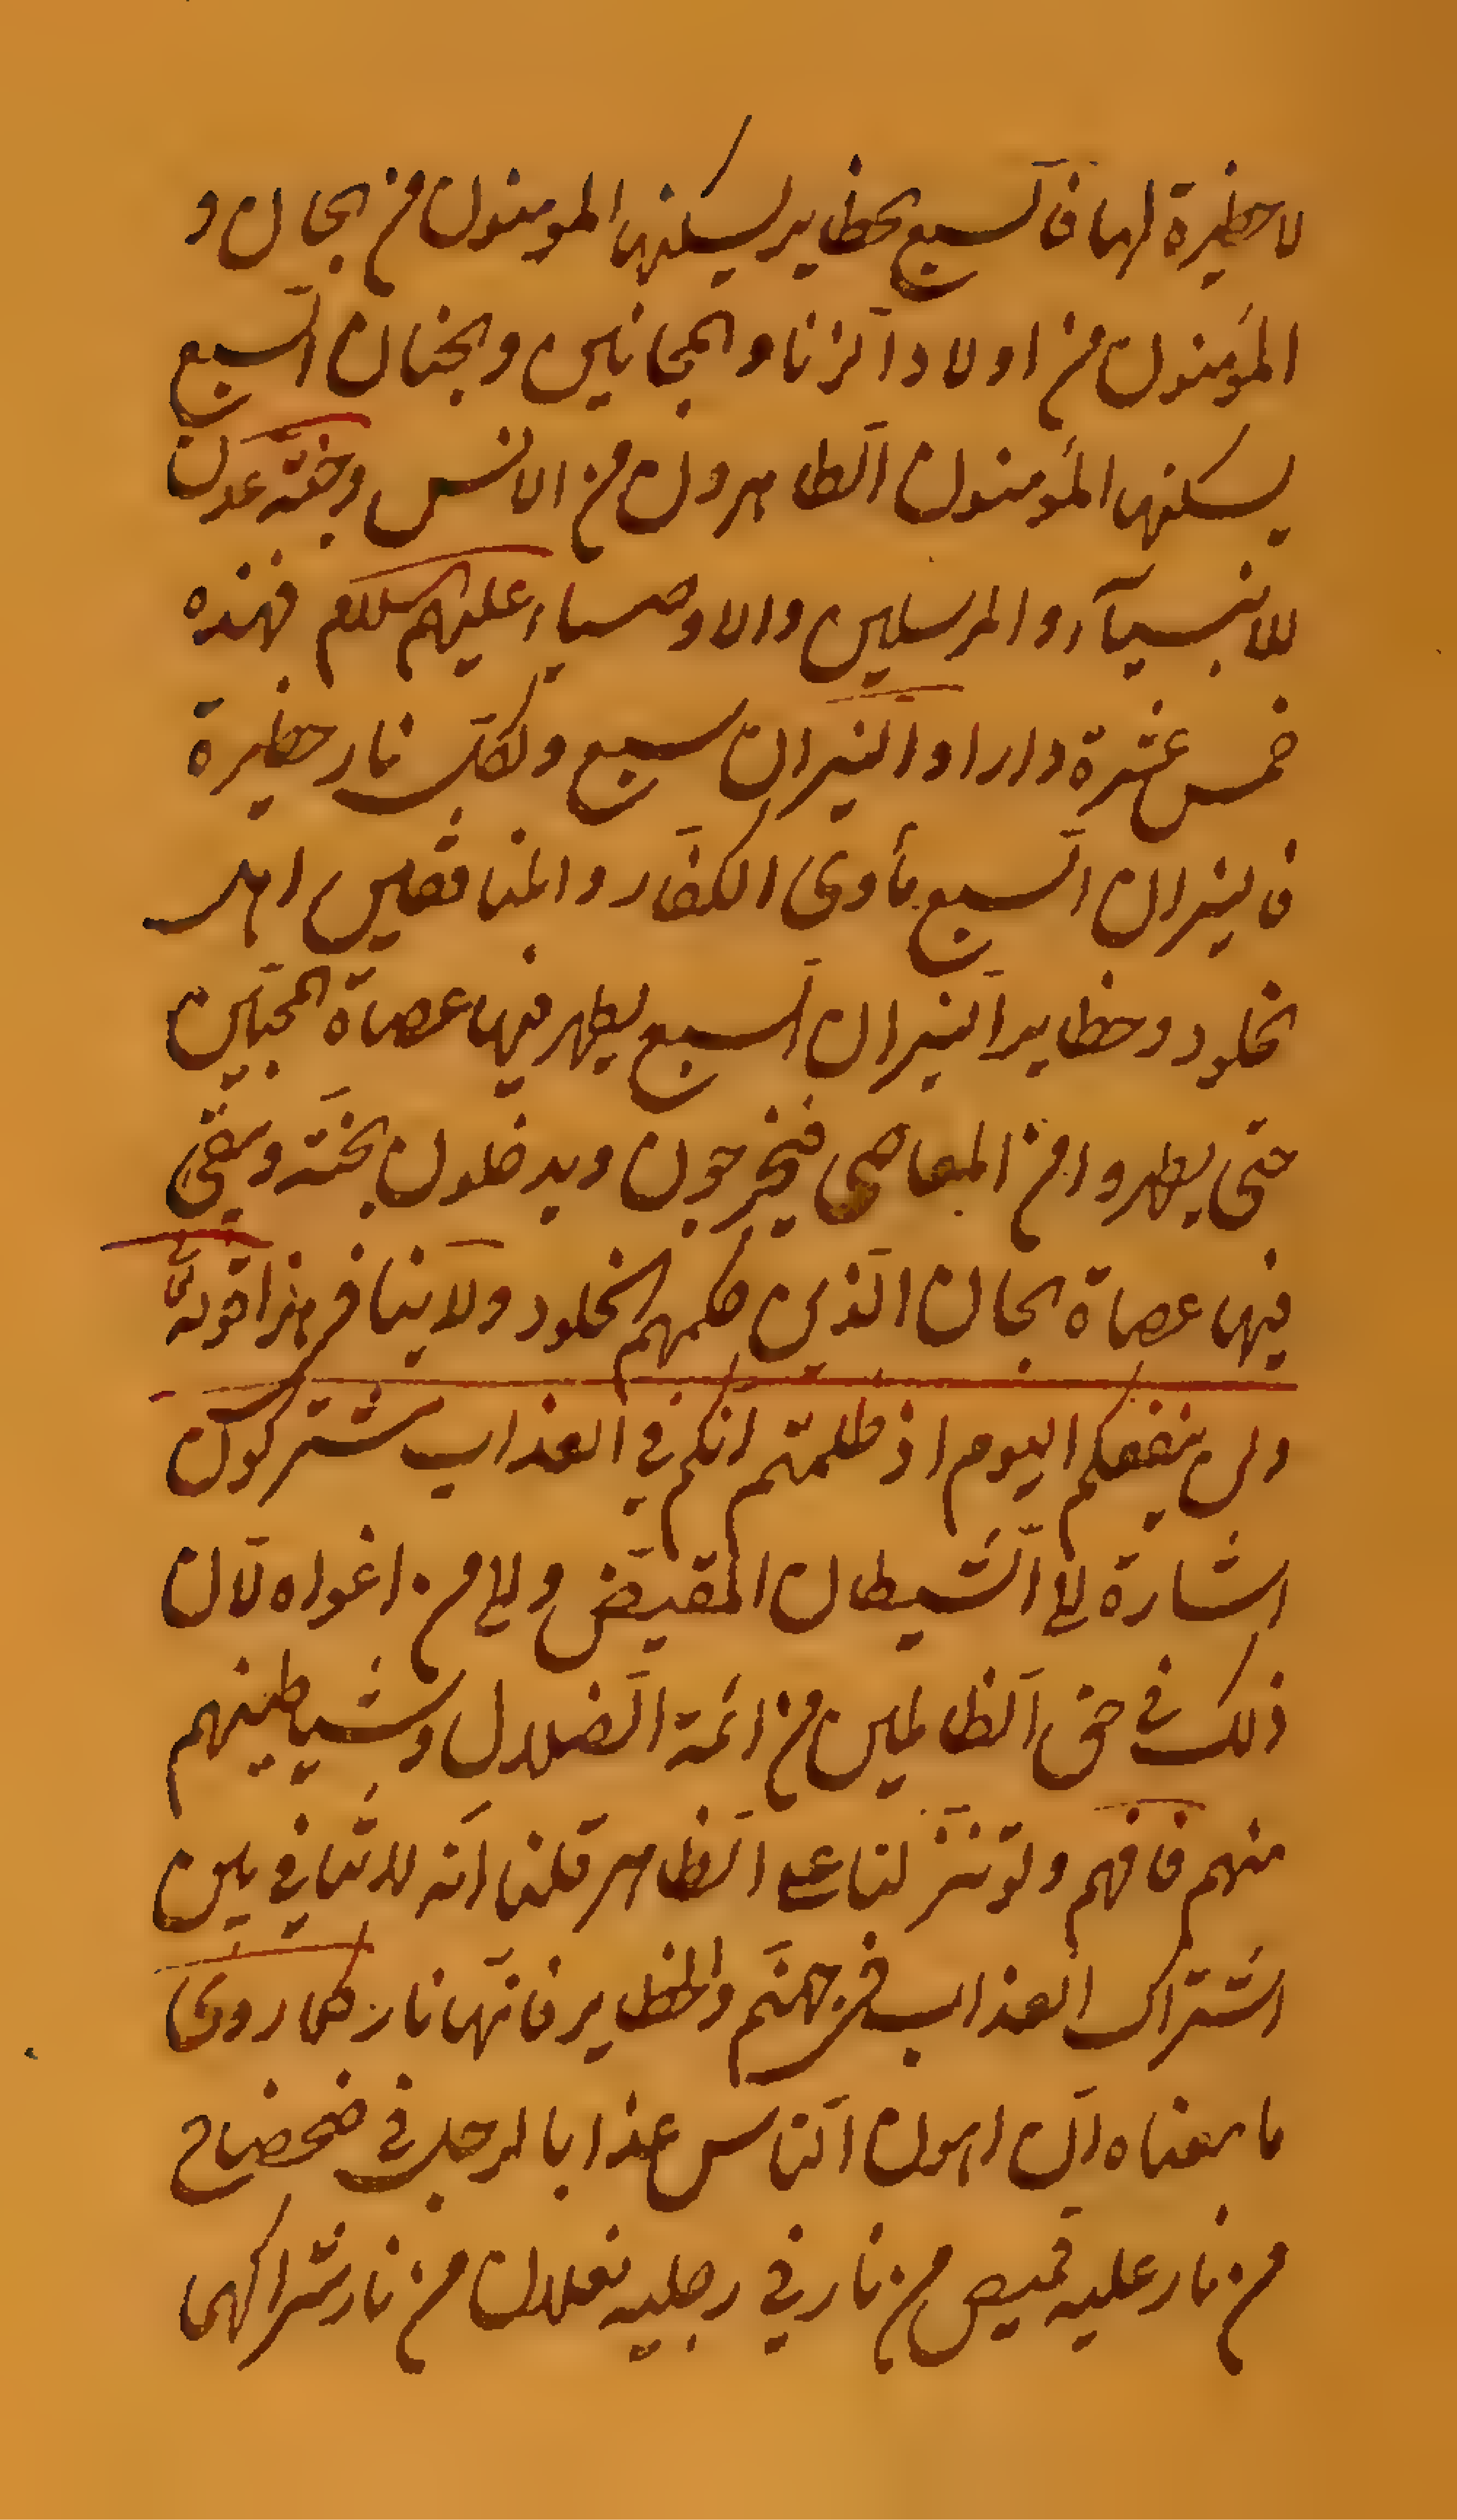 لا حظيرة لها فالسبع الحظاير يسكنها المومنون من الجان و
المؤمنون من اولاد الزنا والمجانين والجنان السبع
يسكنها المؤمنون الطاهرون من الانس وجنة عدن
للانبيآء والمرسلين والاوصياء عليهم السلام فهذه
خمس عشرة دارا والنيران سبع ولكل نار حظيرة
فالنيران السبع مأوى الكفار والمنافقين اهل
الخلود وحظاير النيران السبع يطهر فيها عصاة المحبين
حتى يطهروا من المعاصى فيخرجون ويدخلون الجنة ويبقى
فيها عصاة الجان الذين حكمهم الخلود ولا ينافى هذا قوله تع
ولن ينفعكم اليوم اذ ظلمتم انكم في العذاب مشتركون
اشارة الى الشيطان المقيض والى من اغواه لان
ذلك في حق الظالمين من ائمة الضلال وشياطينهم
منهم فافهم ولو تنزلنا على الظاهر قلنا انه لا تنافي بين
اشتراك العذاب في جهنم والحظاير فانها نار كما روى
ما معناه ان اهون الناس عذابا لرجل في ضحضاح
من نار عليه قميص من نار في رجليه نعلان من نار شراكهما